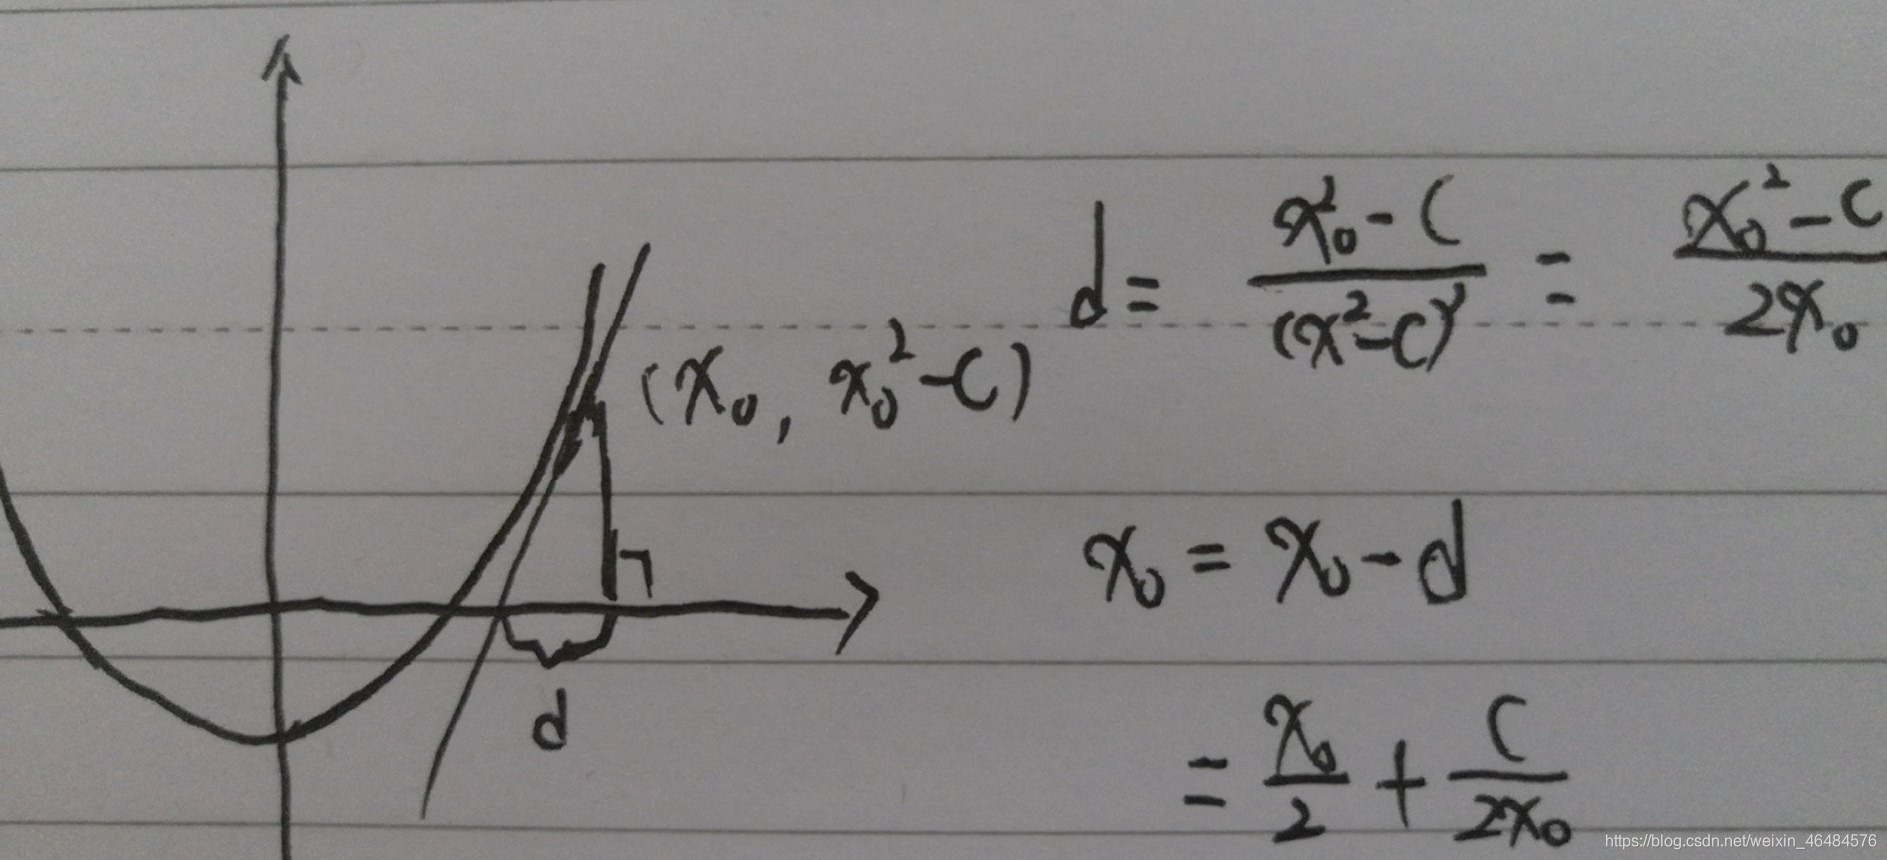 d = \frac{x_0^2 - C}{(x^2 - C)'} = \frac{x_0^2 - C}{2x_0}
(x_0, x_0^2 - C)
x_0 = x_0 - d
= \frac{x_0}{2} + \frac{C}{2x_0}
d
https://blog.csdn.net/weixin_46484576